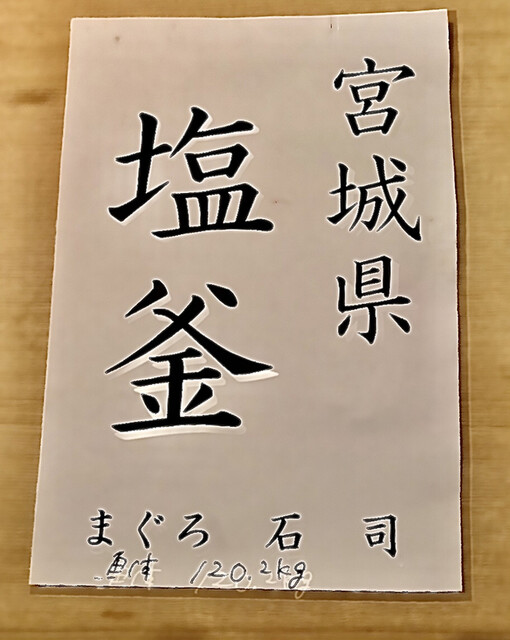 宮城県
塩釜
まぐろ 石 司
魚体 120.2kg